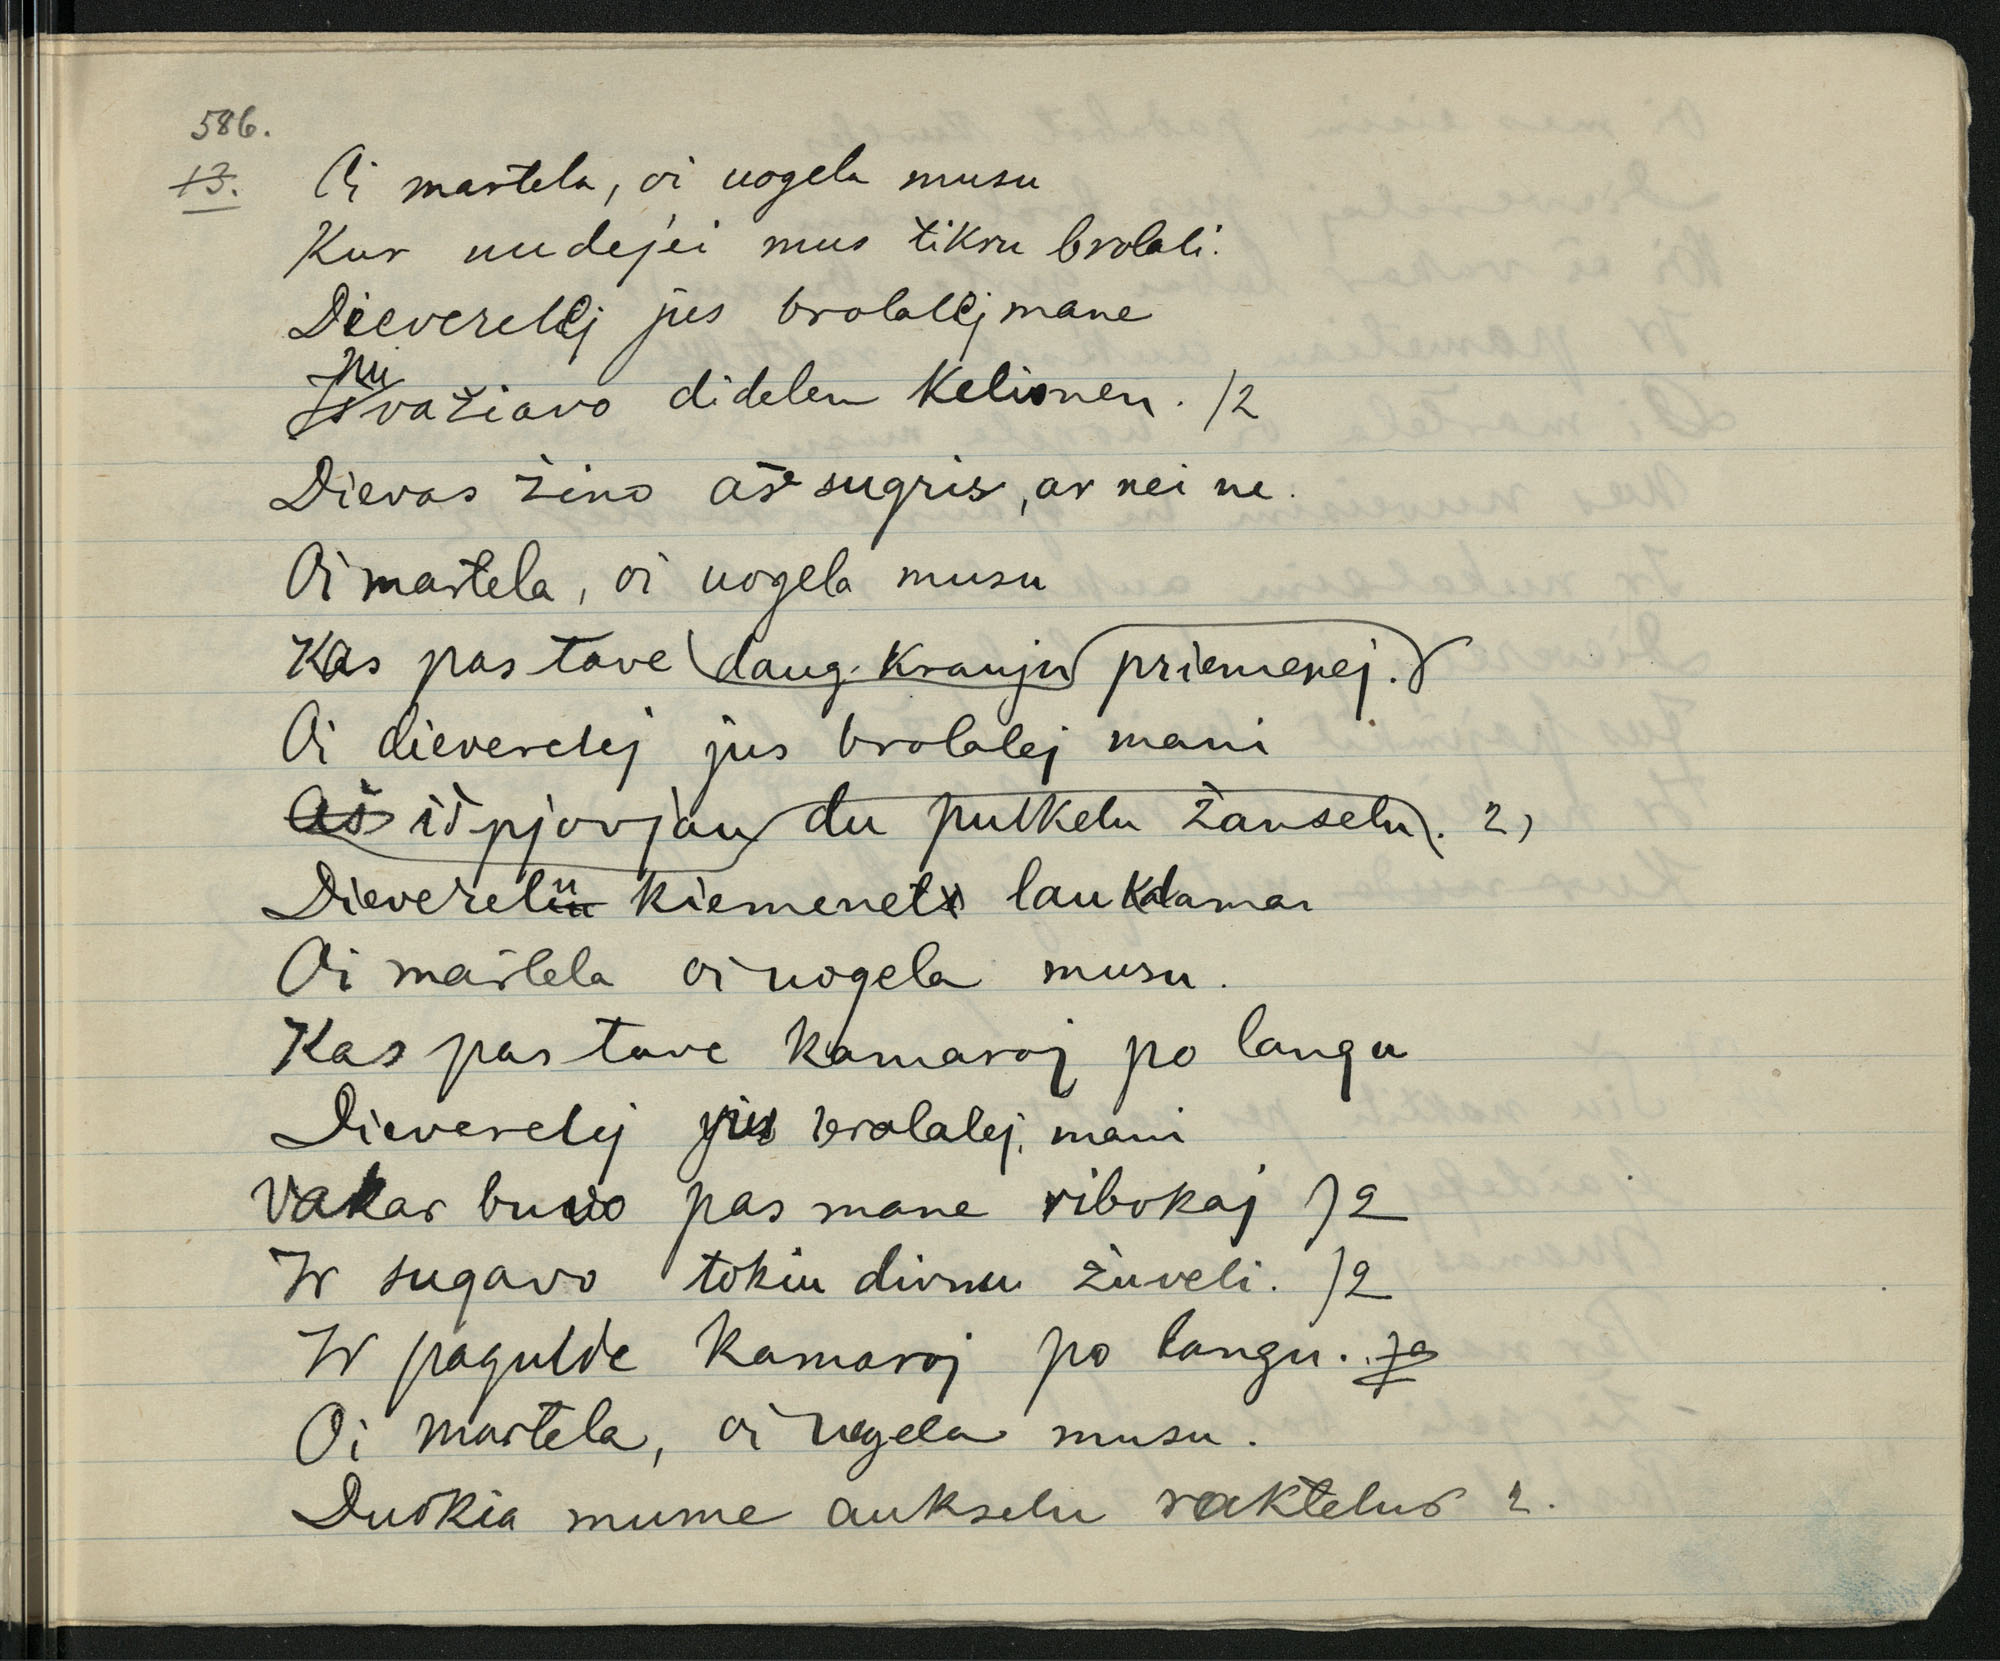 586.
13. Oi martela, oi uogela musu
Kur nudejei mus tikru brolali.
Dieverelej jus brolalej mane
nuvažiavo didelen kelionen. /2
Dievas žino aš sugris, ar nei ne.
Oi martela, oi uogela musu
Kas pas tave daug krauju priemenej.
Oi dieverelej jus brolalej mani
Aš išpjovjau du pulkelu žanselu. 2)
Dievereliu kiemenel laukdama
Oi martela oi uogela musu.
Kas pas tave kamaroj po langu
Dieverelej jus brolalej, mani
Vakar buvo pas mane ribokaj )2
Ir sugavo tokiu divnu žuveli. )2
Ir pagulde kamaroj po langu.
Oi martela, oi uogela musu.
Duokia mume aukselu raktelus 2.